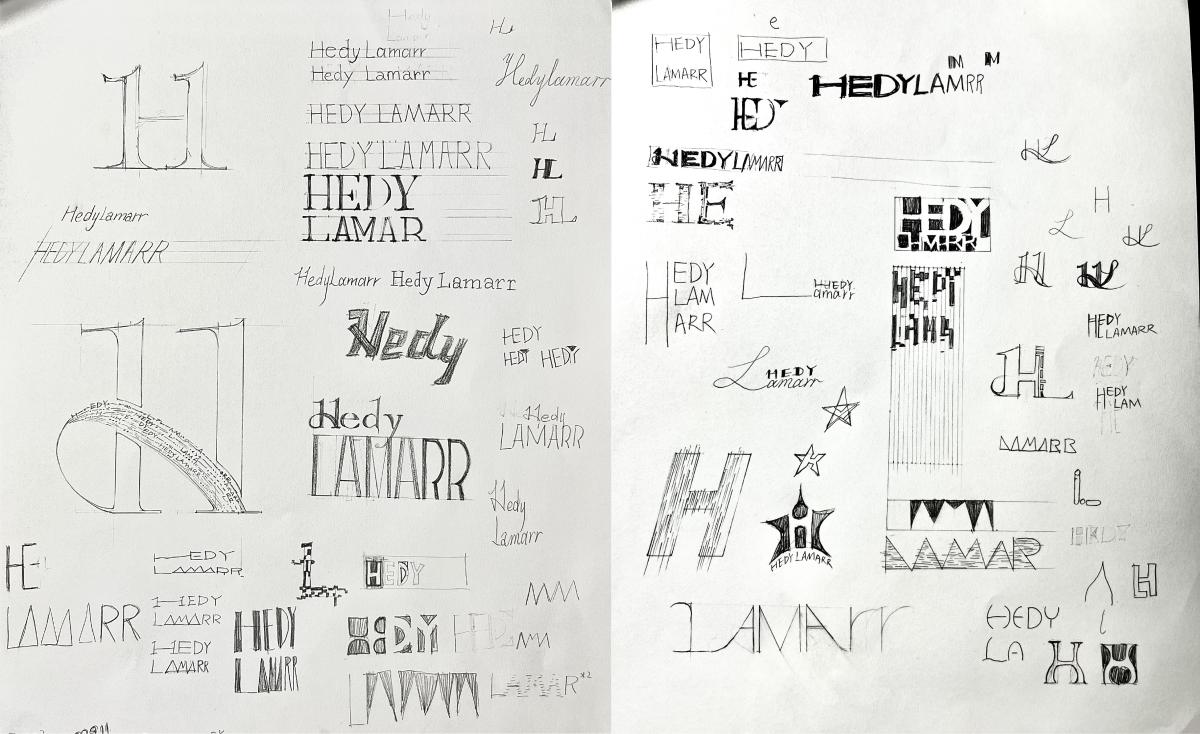 Hedy
Lamarr
Hedy Lamarr
Hedy Lamarr
HEDY LAMARR
HEDY LAMARR
HEDY
LAMAR
HL
Hedylamarr
HL
HL
HL
H
Hedylamarr
HEDYLAMARR
HedyLamarr Hedy Lamarr
Hedy
HEDY
HEDY HEDY
H
Hedy
LAMARR
Hedy
LAMARR
Hedy
Lamarr
HE
LAMARR
HEDY
LAMARR
HEDY
LAMARR
HEDY
LAMARR
HEDY
LAMARR
L
HEDY
HEDY
HEDY
LAMAR*2
e
HEDY
LAMARR
HEDY
HE
HEDY
HEDYLAMRR
M M
HEDYLAMARR
HE
HEDY
LAMARR
HL
H
L
HL
HL
HL
HEDY
LAM
ARR
L
HUEDY
amarr
HEDY
LAMARR
HEDY
Lamarr
HL
HEDY
HEDY
LAM
HE
LAMARR
H
H
HEDY LAMARR
L
LAMAR
HEDY
LAMArr
HEDY
LA
H
H